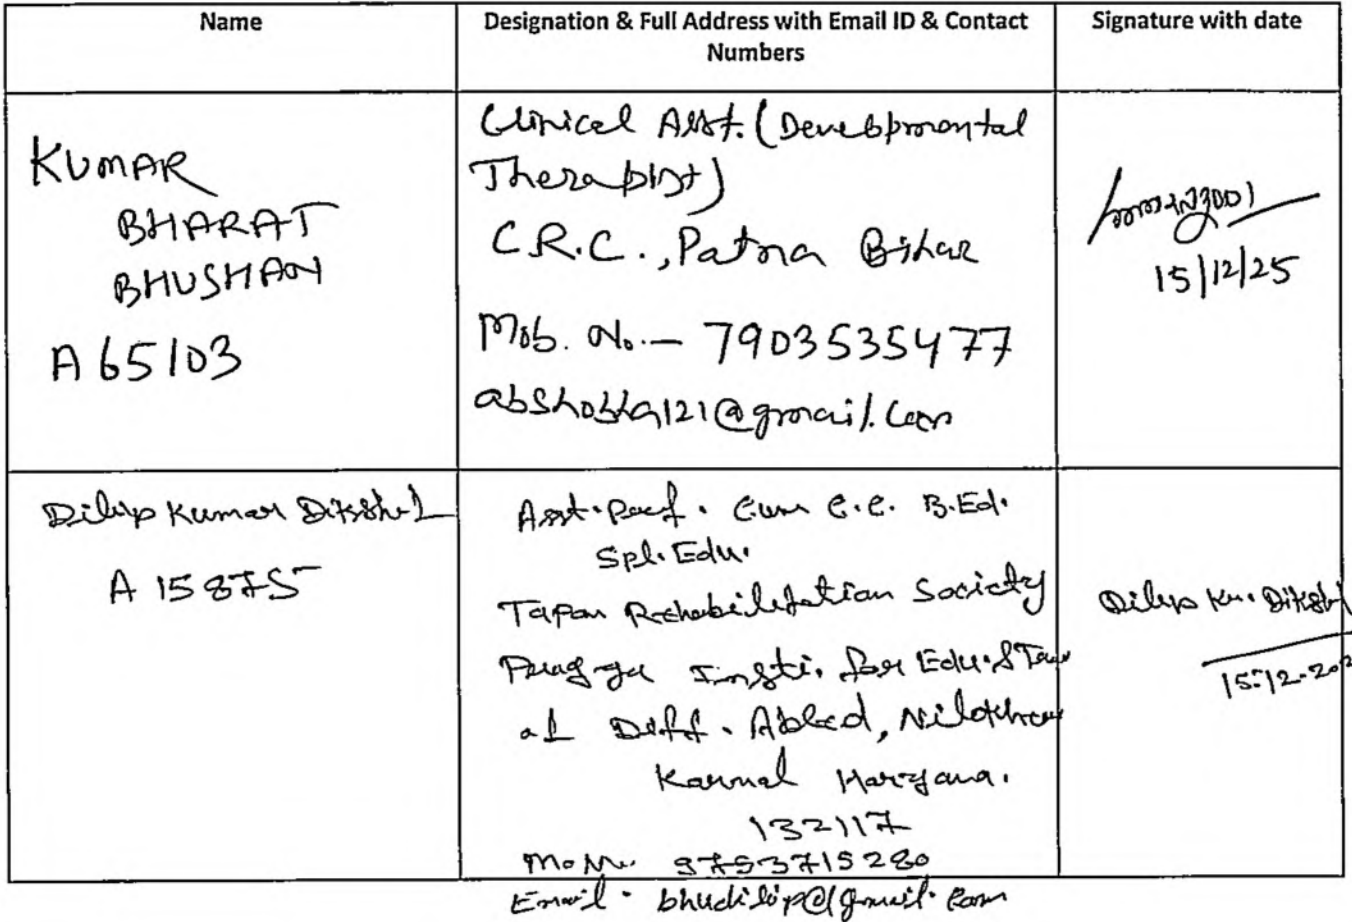 Name
Designation & Full Address with Email ID & Contact
Numbers
Signature with date
KUMAR
BHARAT
BHUSHAN
A 65103
Clinical Asst. (Developmental
Therapist)
C.R.C., Patna Bihar
Mob. No. - 7903535477
@gmail.com
15/12/25
Dilip Kumar Dikshit
A 15875
Asst. Prof. Cum C.C. B.Ed.
Spl. Edu.
Tapan Rehabilitation Society
Insti. for Edu. &
of Diff. Abled,
Karnal Haryana.
132117
9753715280
Email - bhudilip@gmail.com
Dilip Ku. Dikshit
15-12-202